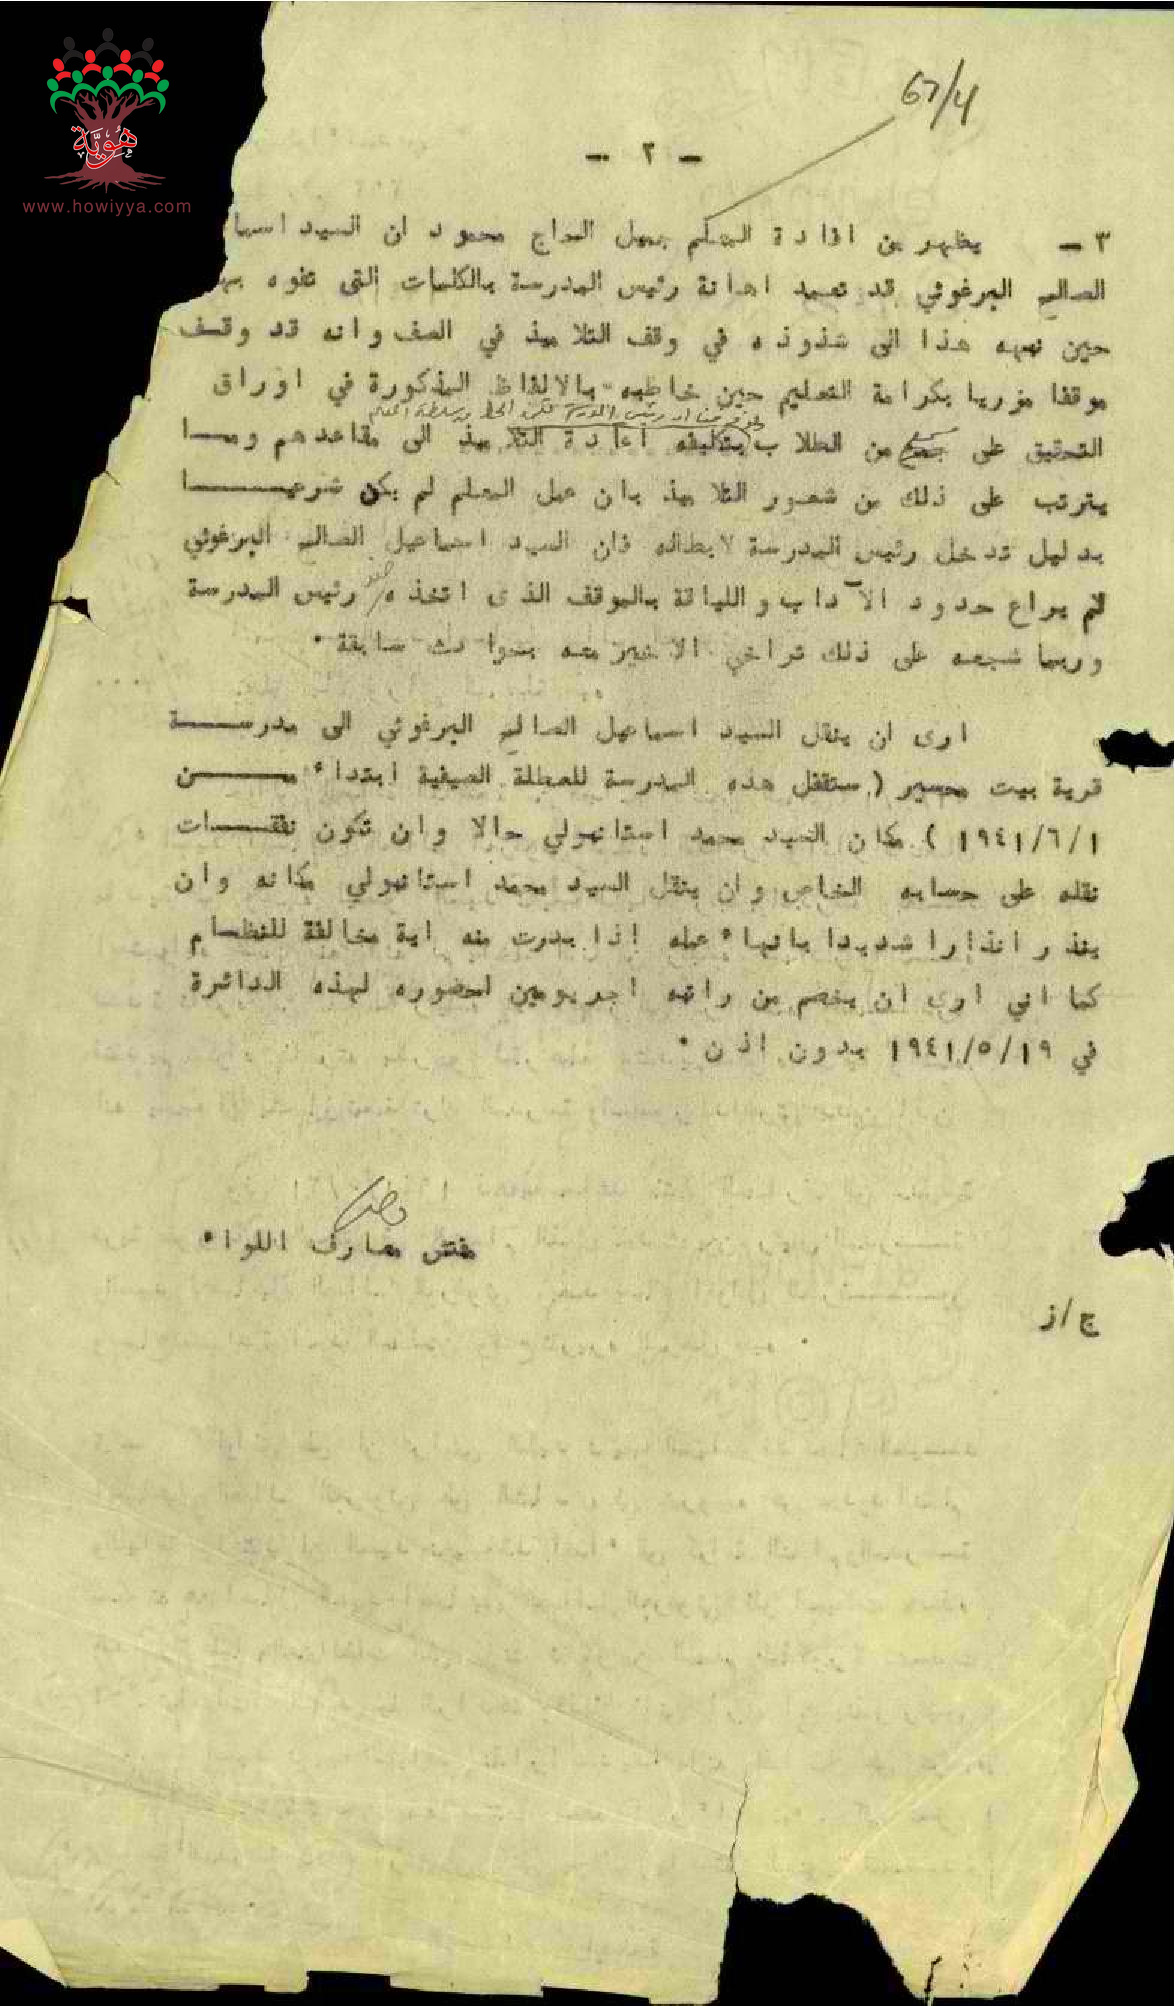 هُويَّة
www.howiyya.com
67/4
- ٢ -
٣ - يظهر من افادة المعلم جميل الحاج محمود ان السيد اسما
الصالح البرغوثي قد تعمد اهانة رئيس المدرسة بالكلمات التي تفوه بها
حين نبهه هذا الى شذوذه في وقف التلاميذ في الصف وانه قد وقف
موقفا مزريا بكرامة التعليم حين خاطبه بالالفاظ المذكورة في اوراق
التحقيق على مسمع من الطلاب بتكليفه اعادة التلاميذ الى مقاعدهم ومـــا
يترتب على ذلك من شعور التلاميذ بان عمل المعلم لم يكن شرعيـــــا
بدليل تدخل رئيس المدرسة لابطاله فان السيد اسماعيل الصالح البرغوثي
لم يراع حدود الآداب واللياقة بالموقف الذى اتخذه ضد رئيس المدرسة
وربما شجعه على ذلك تراخي الاخير معه بحوادث سابقة .
ارى ان ينقل السيد اسماعيل الصالح البرغوثي الى مدرســـة
قرية بيت محسير ( ستقفل هذه المدرسة للعطلة الصيفية ابتداء مـــــن
١٩٤١/٦/١ ) مكان السيد محمد استانبولي حالا وان تكون نفقـــات
نقله على حسابه الخاص وان ينقل السيد محمد استانبولي مكانه وان
ينذر انذارا شديدا بانهاء عمله اذا بدرت منه اية مخالفة للنظـام
كما اني ارى ان يخصم من راتبه اجر يومين لحضوره لهذه الدائرة
في ١٩٤١/٥/١٩ بدون اذن .
مفتش معارف اللواء
ج/ز